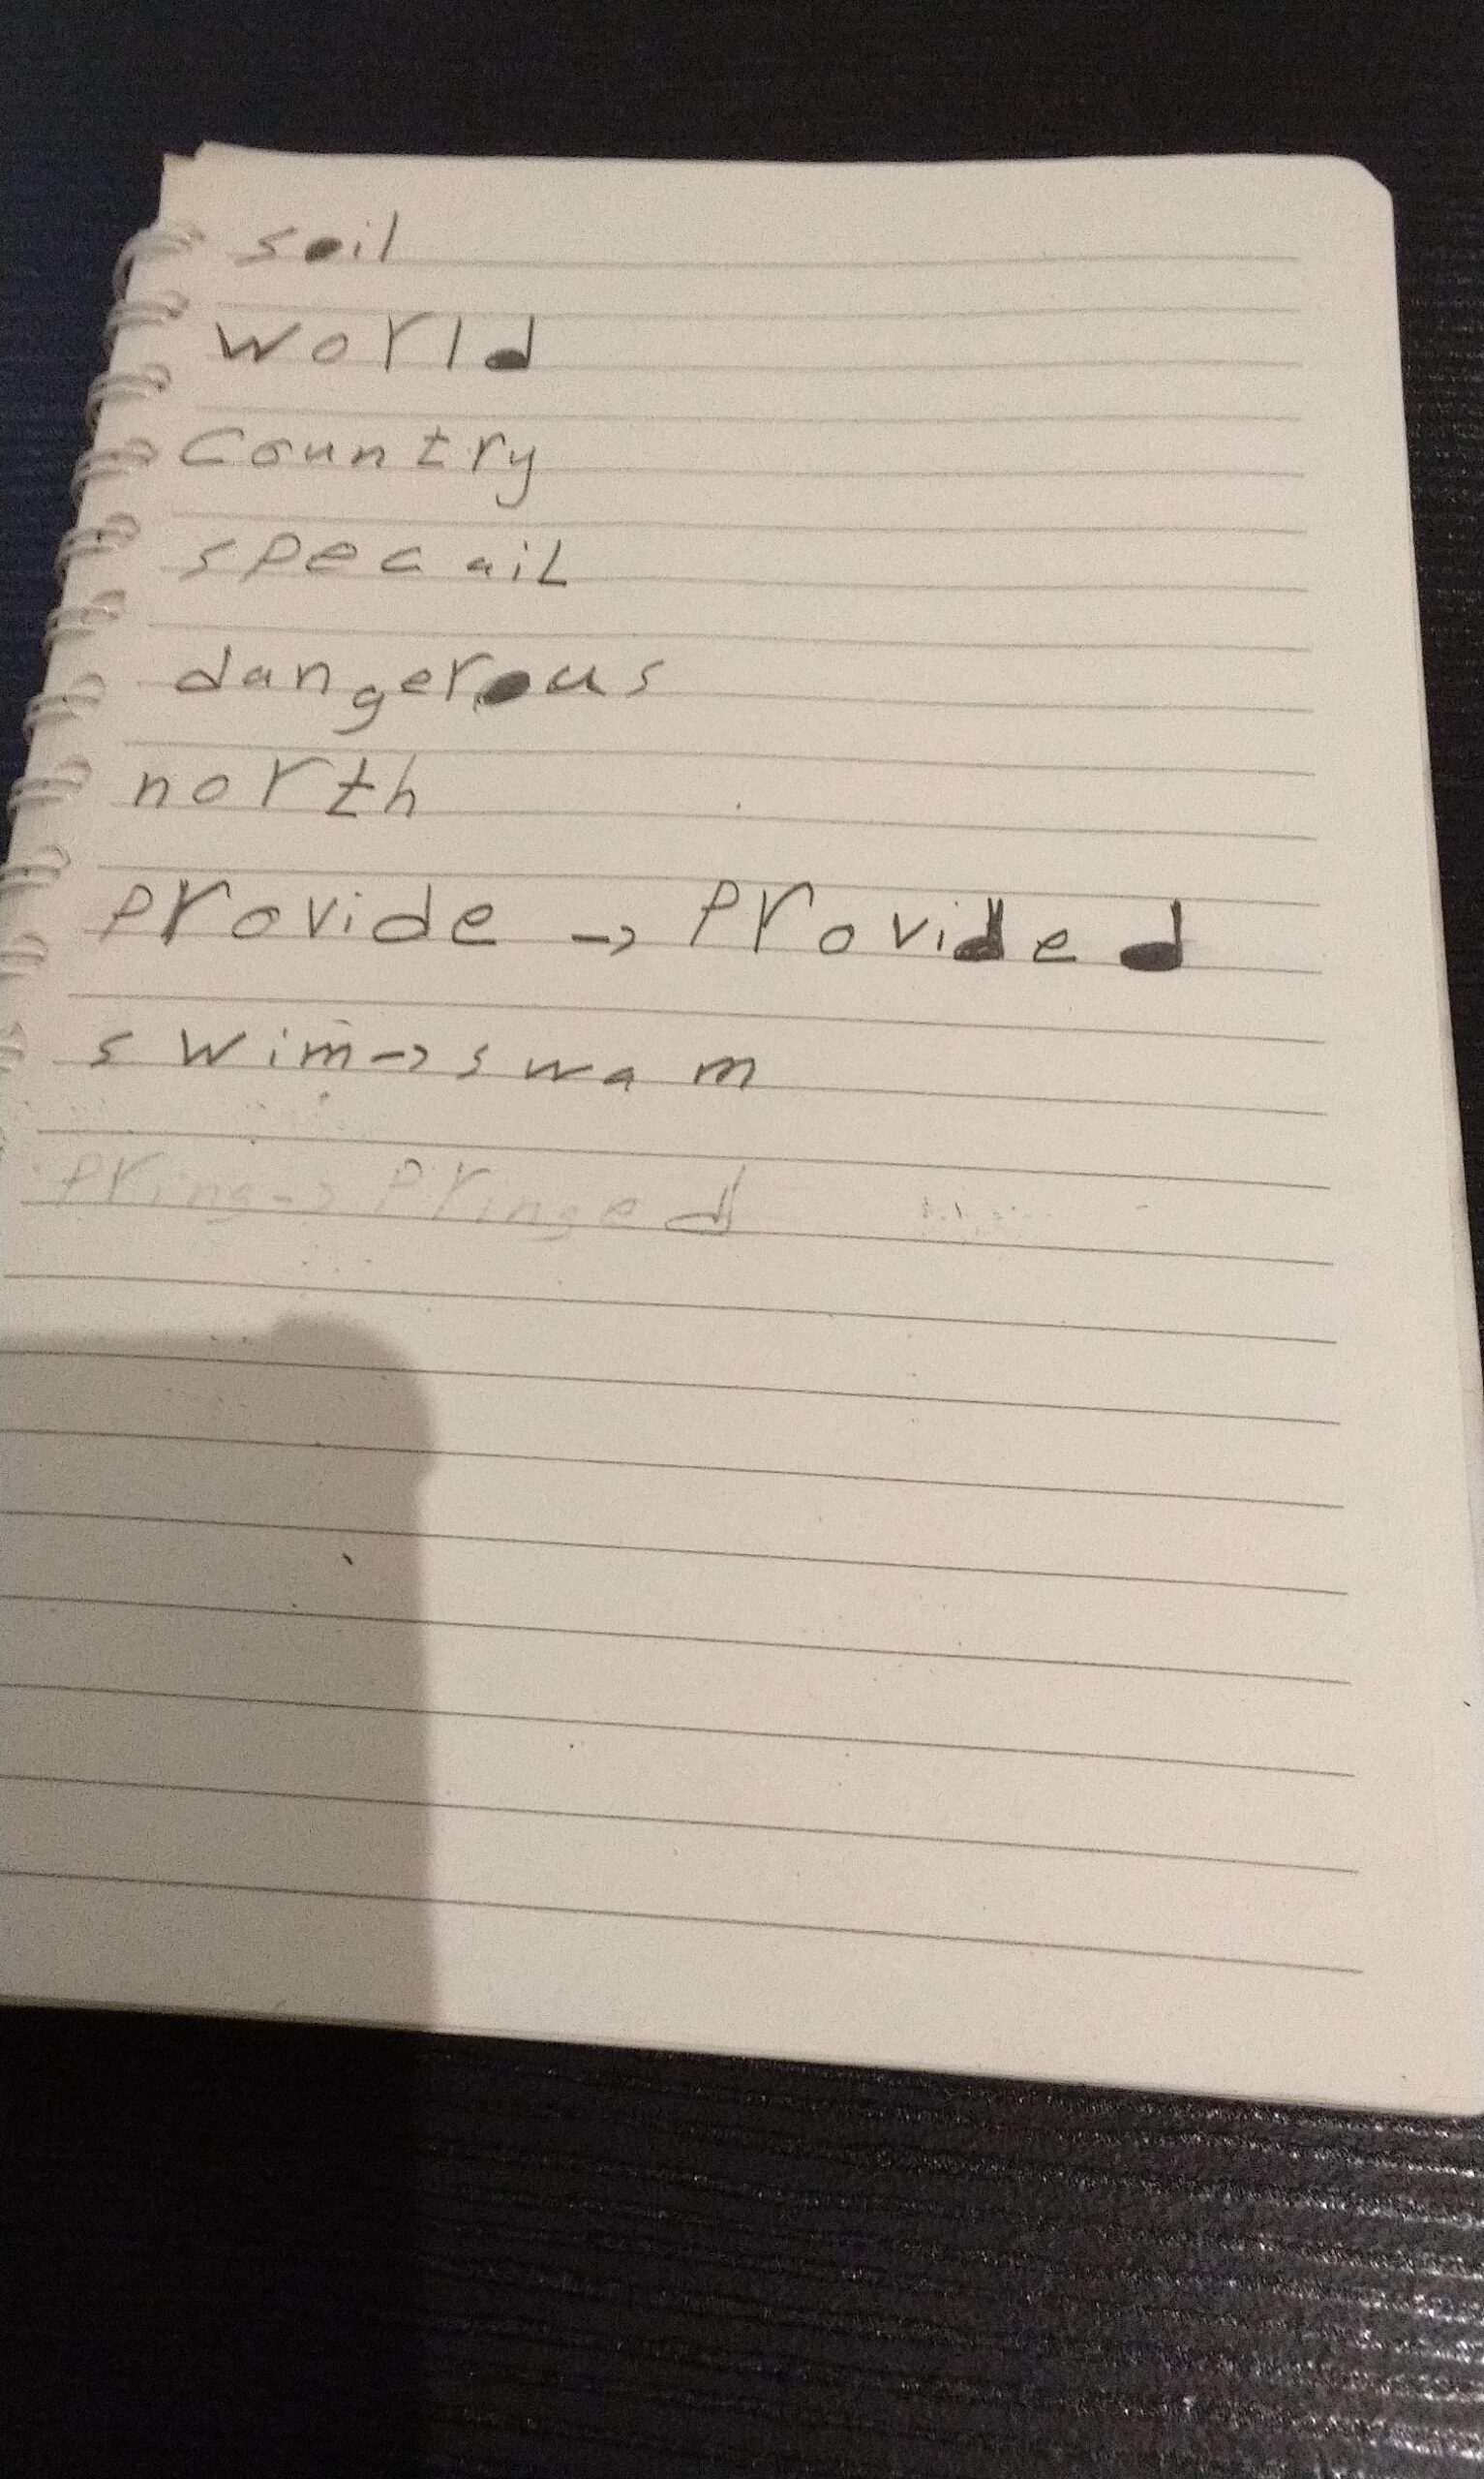 soil
world
country
specail
dangerous
north
provide → provided
swim → swam
pring → pringed